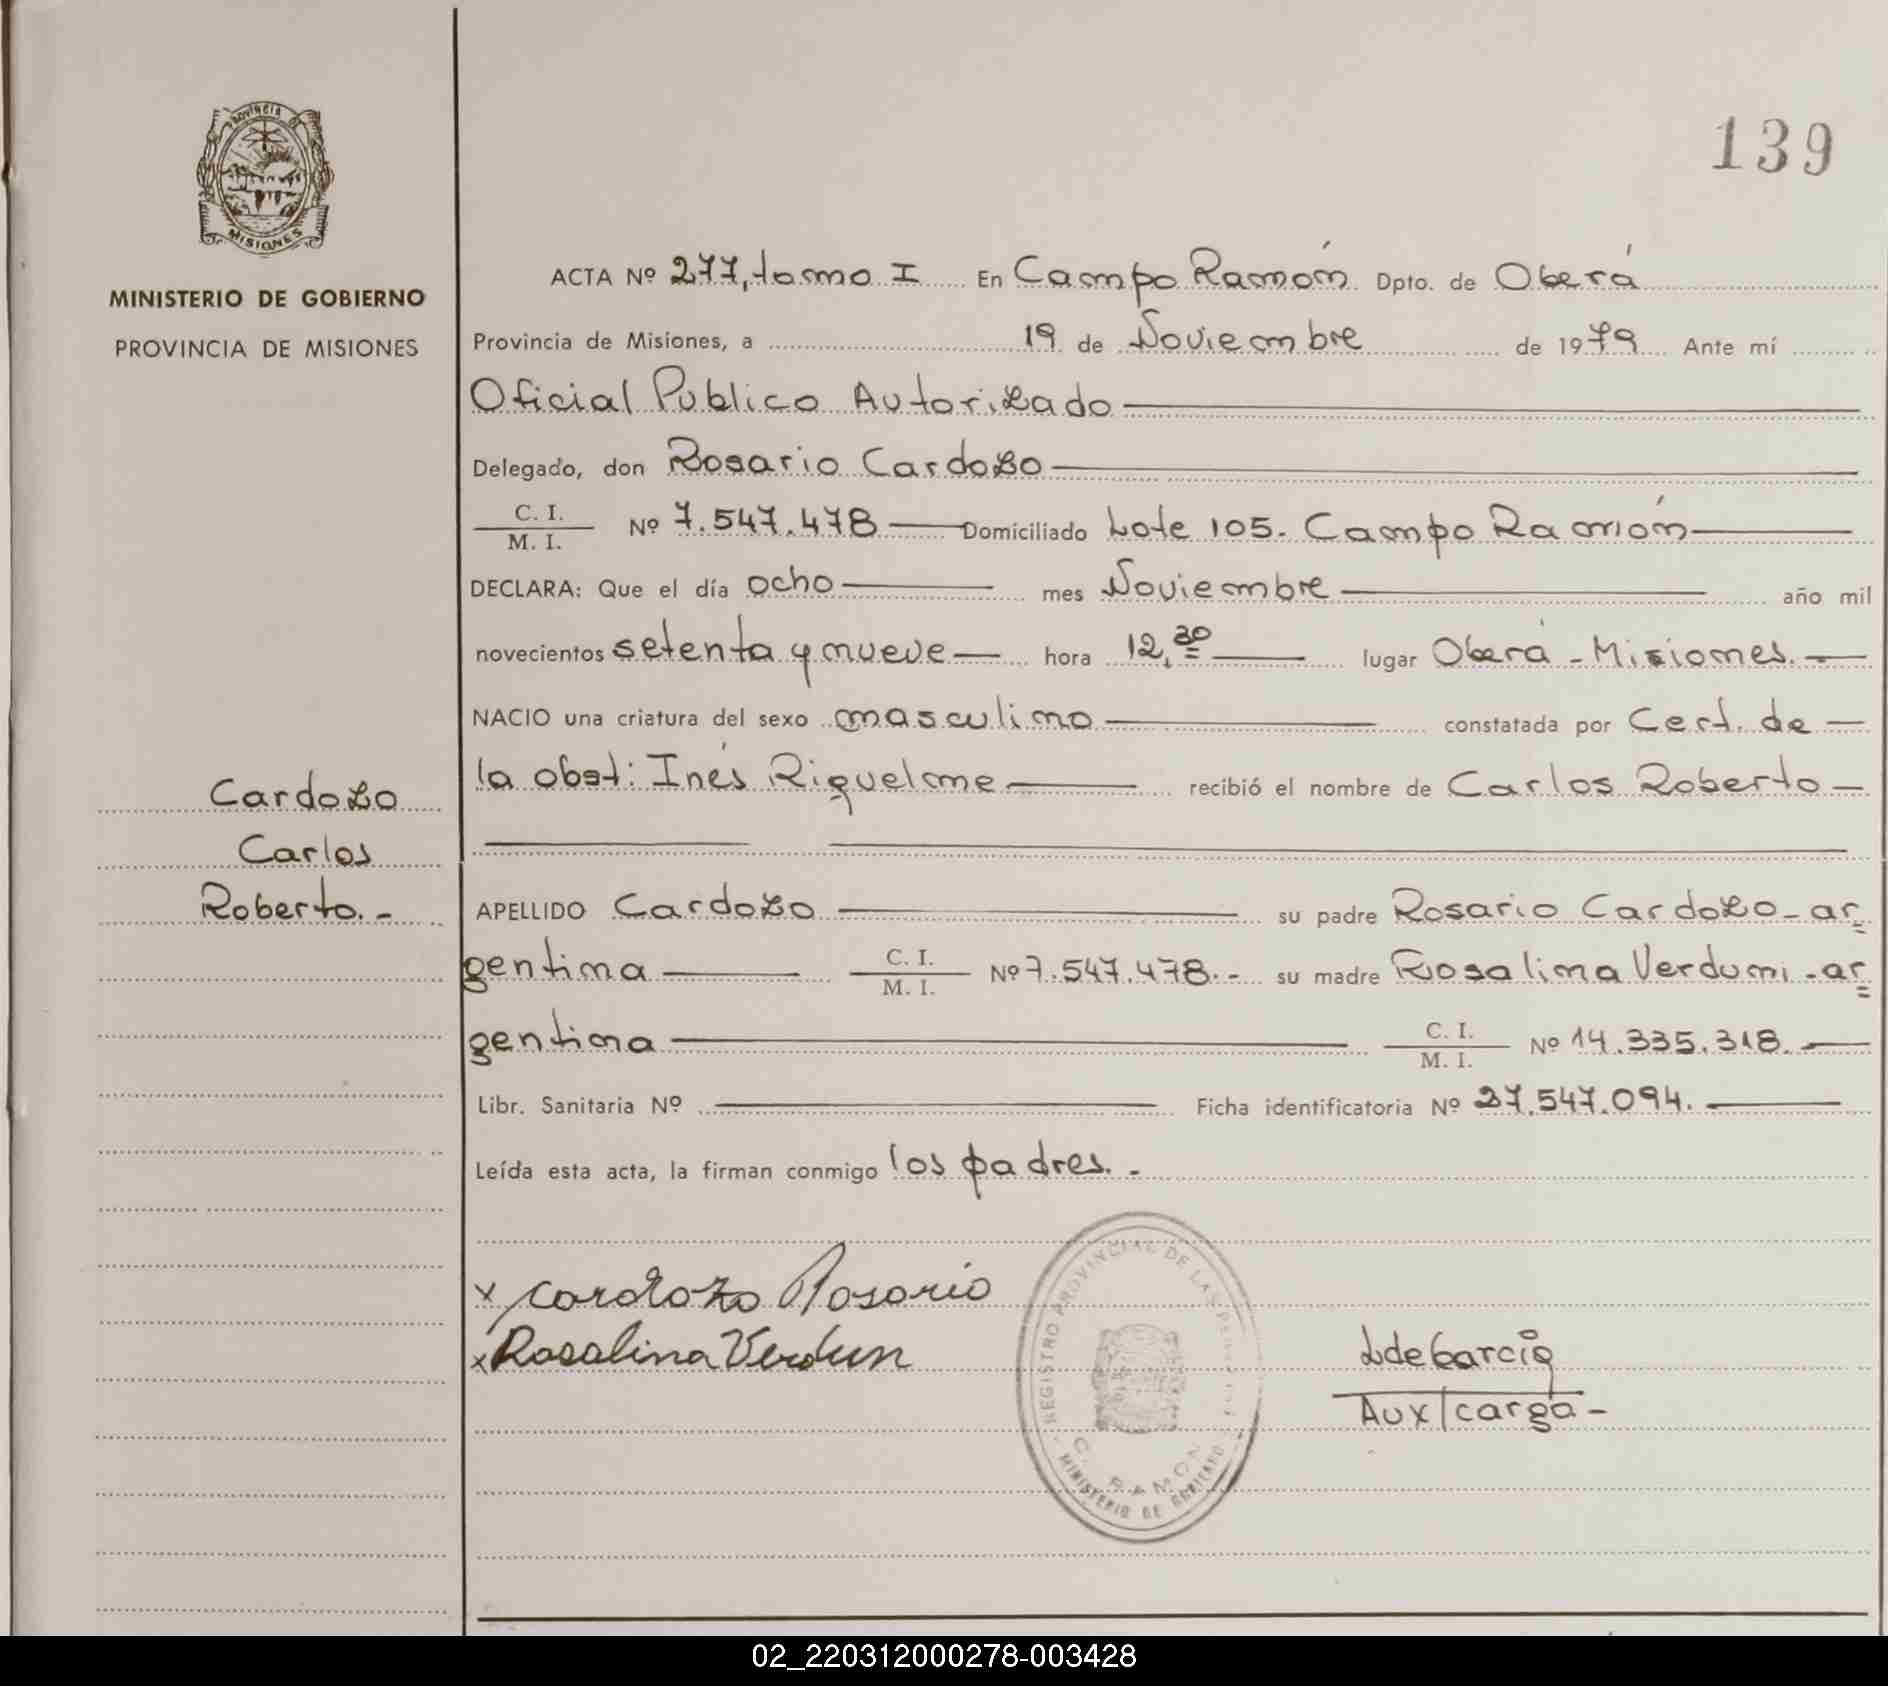 PROVINCIA DE
MISIONES
MINISTERIO DE GOBIERNO
PROVINCIA DE MISIONES
139
ACTA Nº 277, tomo I En Campo Ramón Dpto. de Oberá
Provincia de Misiones, a 19 de Noviembre de 1979 Ante mí
Oficial Publico Autorizado
Delegado, don Rosario Cardozo
C. I.
M. I.
Nº 7.547.478 Domiciliado Lote 105. Campo Ramón
DECLARA: Que el día ocho mes Noviembre año mil
novecientos setenta y nueve hora 12,30 lugar Oberá - Misiones.
NACIO una criatura del sexo masculino constatada por Cert. de
la obst: Inés Riquelme recibió el nombre de Carlos Roberto
Cardozo
Carlos
Roberto. -
APELLIDO Cardozo su padre Rosario Cardozo - ar
gentina C. I.
M. I. Nº 7.547.478. - su madre Rosalina Verdum - ar
gentina C. I.
M. I. Nº 14.335.318.
Libr. Sanitaria Nº Ficha identificatoria Nº 27.547.094.
Leída esta acta, la firman conmigo los padres. -
x Cardozo Rosario
x Rosalina Verdun
REGISTRO PROVINCIAL DE LAS
C. RAMON
MINISTERIO DE GOBIERNO
LdeGarcia
Aux/carga -
02_220312000278-003428